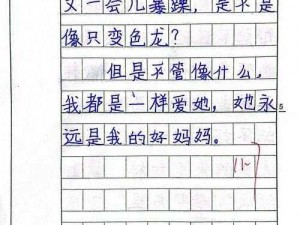 又一会儿暴躁，是不是
像只变色龙？
但是不管像什么，
我都是一样爱她，她永
远是我的好妈妈。